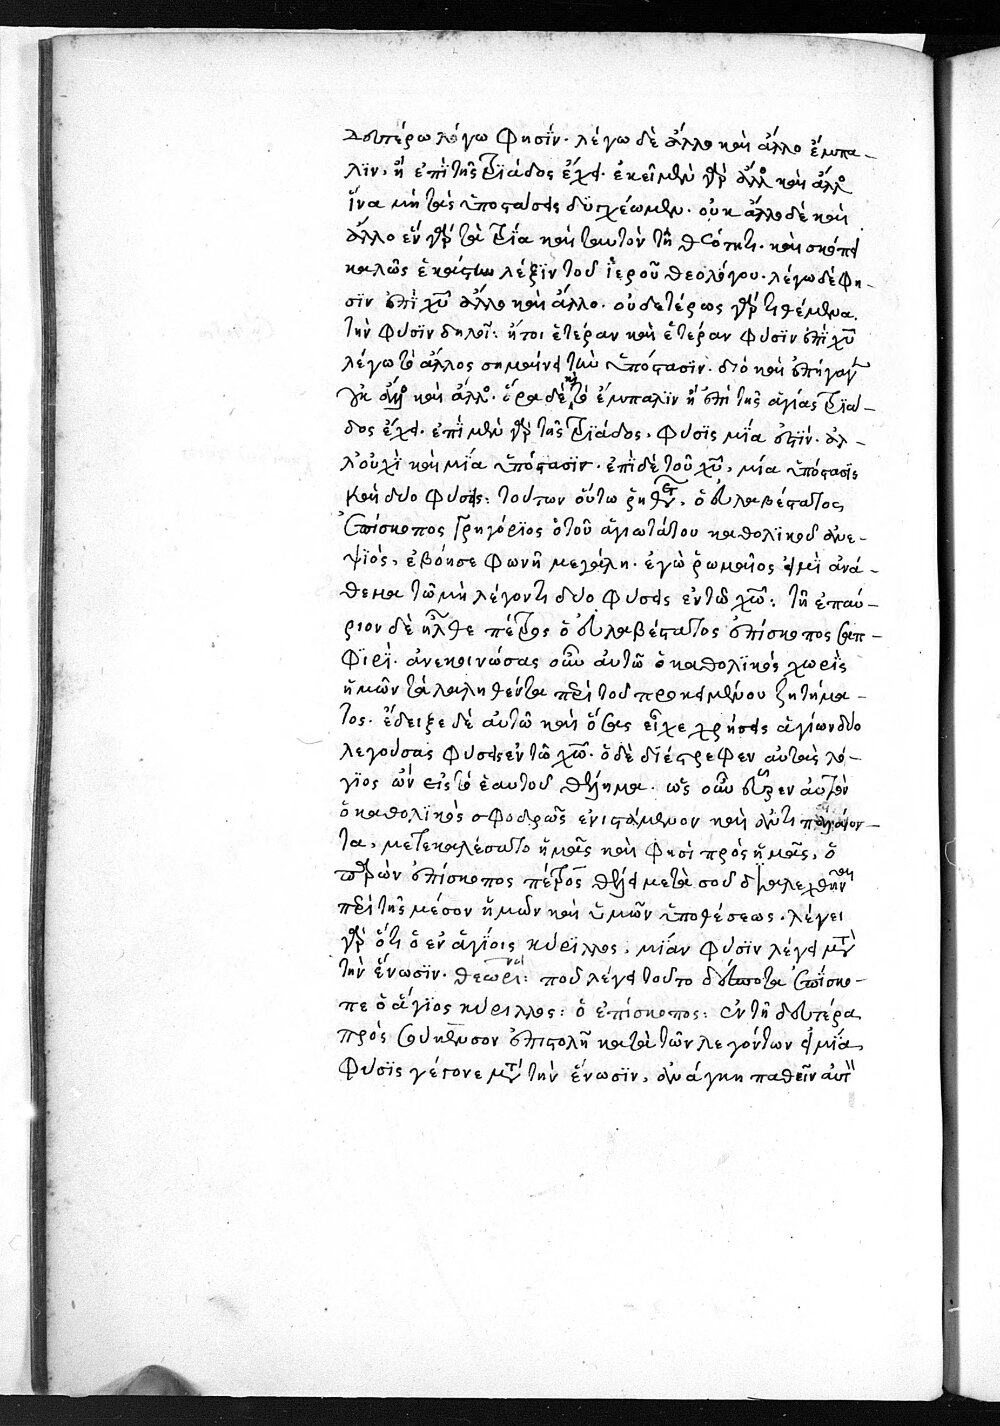 δευτέρω λόγω φησΐν· λέγω δὲ ἄλλο καὶ ἄλλο ἔμπα-
λϊν, ἢ ἐπὶ τῆς Τριάδος ἔχει· ἐκεῖ μὲν γὰρ ἄλλος καὶ ἄλλος
ἵνα μὴ τὰς ὑποστάσεις συγχέωμεν· οὐκ ἄλλο δὲ καὶ
ἄλλο ἓν γὰρ τὰ τρία καὶ ταυτὸν τῆ θεότητι· καὶ σκόπει
καλῶς ἑκάστην λέξϊν τοῦ ἱεροῦ θεολόγου· λέγω δέ φη-
σϊν ἐπὶ χῦ ἄλλο καὶ ἄλλο· οὐδετέρως γὰρ τιθέμενα
τὴν φύσϊν δηλοῖ: ἤτοι ἑτέραν καὶ ἑτέραν φύσϊν ἐπὶ χῦ
λέγω τὸ ἄλλος σημαίνει τὴν ὑπόστασϊν· διὸ καὶ ἐπήγαγεν
οὐκ ἄλλος καὶ ἄλλος· ὅρα δὲ καὶ τὸ ἔμπαλϊν ἢ ἐπὶ τῆς ἁγίας Τρϊά-
δος ἔχει· ἐπὶ μὲν γὰρ τῆς Τρϊάδος, φύσϊς μΐα ἐστΐν· ἀλ-
λ' οὐχὶ καὶ μΐα ὑπόστασϊν· ἐπὶ δὲ τοῦ χῦ, μία ὑπόστασϊς
καὶ δύο φύσεις: τούτων οὕτω ῥηθέντων, ὁ εὐλαβέστατος
ἐπίσκοπος Γρηγόρϊος ὁ τοῦ ἁγιωτάτου καθολικοῦ ἀνε-
ψϊός, ἐβόησε φωνῆ μεγάλη· ἐγὼ ῥωμαῖος εἰμὶ ἀνά-
θεμα τῶ μὴ λέγοντι δύο φύσεις ἐν τῶ χῶ: τῆ ἐπαύ-
ριον δὲ ἦλθε πέτρος ὁ εὐλαβέστατος ἐπίσκοπος Σαπ-
φιρὶ· ἀνεκοινώσας οὖν αὐτῶ ὁ καθολϊκὸς χωρὶς
ἡμῶν τὰ λαληθέντα περὶ τοῦ προκειμένου ζητήμα-
τος· ἔδειξε δὲ αὐτῶ καὶ ὅσας εἶχε χρήσεις ἁγίων δύο
λεγούσας φύσεις ἐν τῶ χῶ· ὁ δὲ διέστρεφεν αὐτὰς λό-
γϊος ὢν εἰς τὸ ἑαυτοῦ θέλημα· ὡς οὖν εὗρεν αὐτὸν
ὁ καθολϊκὸς σφοδρῶς ἐνιστάμενον καὶ ἀντι
τα, μετεκαλέσατο ἡμᾶς καὶ φησὶ πρὸς ἡμᾶς, ὁ
παρὼν ἐπίσκοπος πέτρος θέλει μετὰ σοῦ διαλεχθῆναι
περὶ τῆς μέσον ἡμῶν καὶ ὑμῶν ὑποθέσεως· λέγει
γὰρ ὅτι ὁ ἐν ἁγίοις κύριλλος, μίαν φύσϊν λέγει μετὰ
τὴν ἕνωσϊν· θεωριανὸς: ποῦ λέγει τοῦτο δέσποτα ἐπίσκο-
πε ὁ ἅγϊος κύριλλος: ὁ ἐπίσκοπος: ἐν τῆ δευτέρα
πρὸς Σούκενσον ἐπιστολῆ κατὰ τῶν λεγόντων εἰ μία
φύσϊς γέγονε μετὰ τὴν ἕνωσϊν, ἀνάγκη παθεῖν αὐτὴν